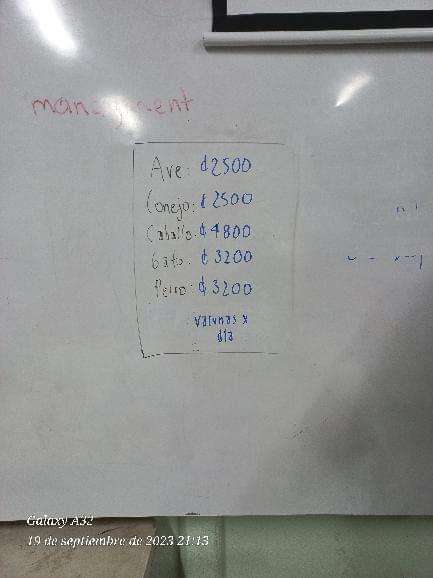 management
Ave: ₡2500
Conejo: ₡2500
Caballo: ₡4800
Gato: ₡3200
Perro: ₡3200
día
Galaxy A32
19 de septiembre de 2023 21:13